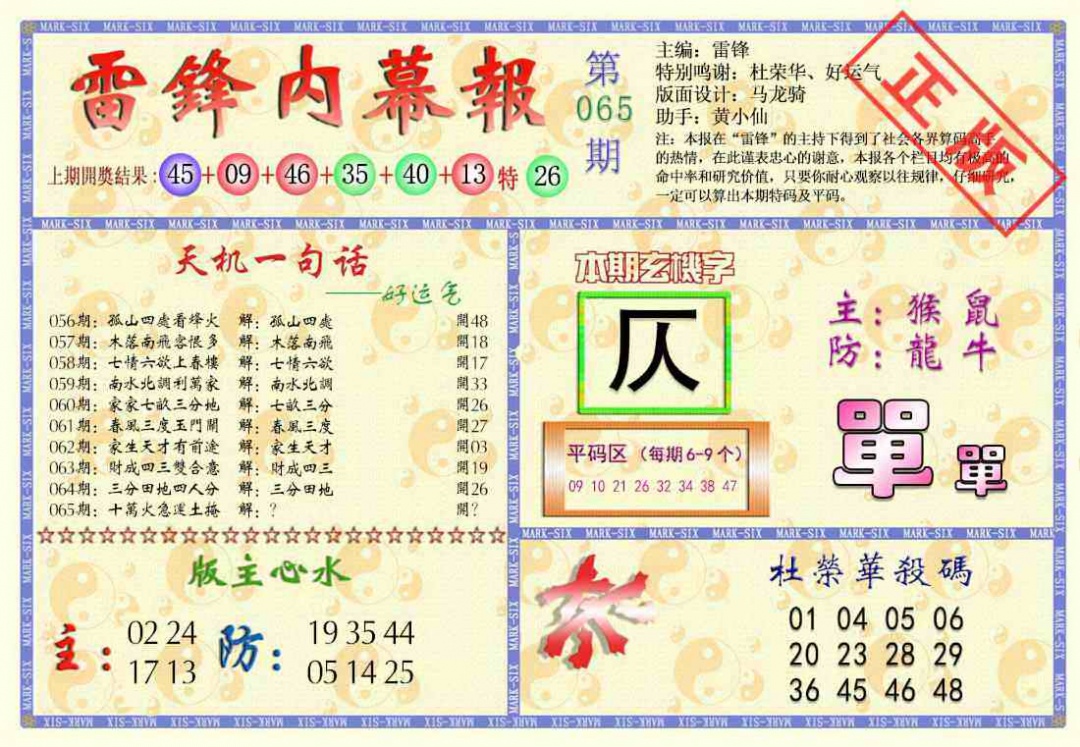 雷鋒内幕報
第
065
期
主编：雷锋
特别鸣谢：杜荣华、好运气
版面设计：马龙骑
助手：黄小仙
注：本报在“雷锋”的主持下得到了社会各界算码高手
的热情，在此谨表忠心的谢意，本报各个栏目均有极高的
命中率和研究价值，只要你耐心观察以往规律，仔细研究，
一定可以算出本期特码及平码。
正版
上期開獎結果：45+09+46+35+40+13特 26
天机一句话
——好运气
056期：孤山四處看烽火 解：孤山四處 開48
057期：木落南飛客恨多 解：木落南飛 開18
058期：七情六欲上春樓 解：七情六欲 開17
059期：南水北調利萬家 解：南水北調 開33
060期：家家七畝三分地 解：七畝三分 開26
061期：春風三度玉門關 解：春風三度 開27
062期：家生天才有前途 解：家生天才 開03
063期：財成四三雙合意 解：財成四三 開19
064期：三分田地四人分 解：三分田地 開26
065期：十萬火急運土掩 解：? 開?
☆☆☆☆☆☆☆☆☆☆☆☆☆☆☆☆☆☆☆☆☆☆☆
版主心水
主： 02 24 防： 19 35 44
17 13 05 14 25
本期玄機字
仄
平码区（每期6-9个）
09 10 21 26 32 34 38 47
主：猴 鼠
防：龍 牛
單 單
杀
杜榮華殺碼
01 04 05 06
20 23 28 29
36 45 46 48
MARK-SIX